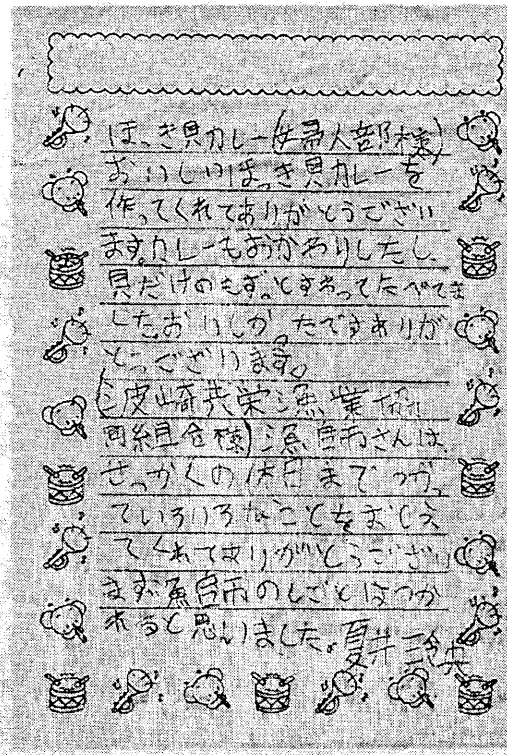 ほっき貝カレー(女帰人部様)
おいしいほっき貝カレーを
作ってくれてありがとうござい
ます。カレーもおかわりしたし、
貝だけのもずっとすわってたべてま
した。おいしかったですありが
とうございます。
(皮崎共栄漁業協
同組合様)漁師さんは、
せっかくの休日までつかっ
ていろいろなことをおしえ
てくれてありがとうござい
ます。漁師のしごとはつか
れると思いました。夏井